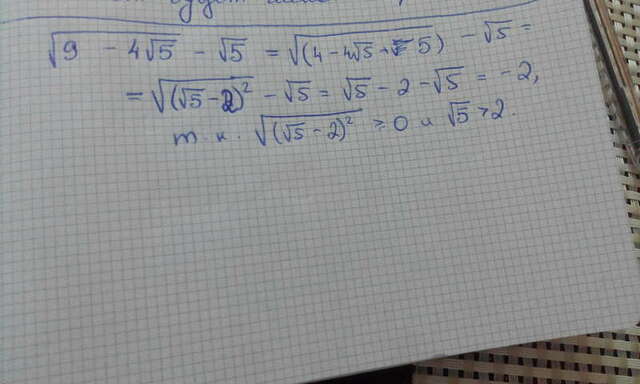 √9 - 4√5 - √5 = √(4 - 4√5 + 5) - √5 =
= √(√5 - 2)² - √5 = √5 - 2 - √5 = -2,
т.к. √(√5 - 2)² ≥ 0 и √5 > 2.